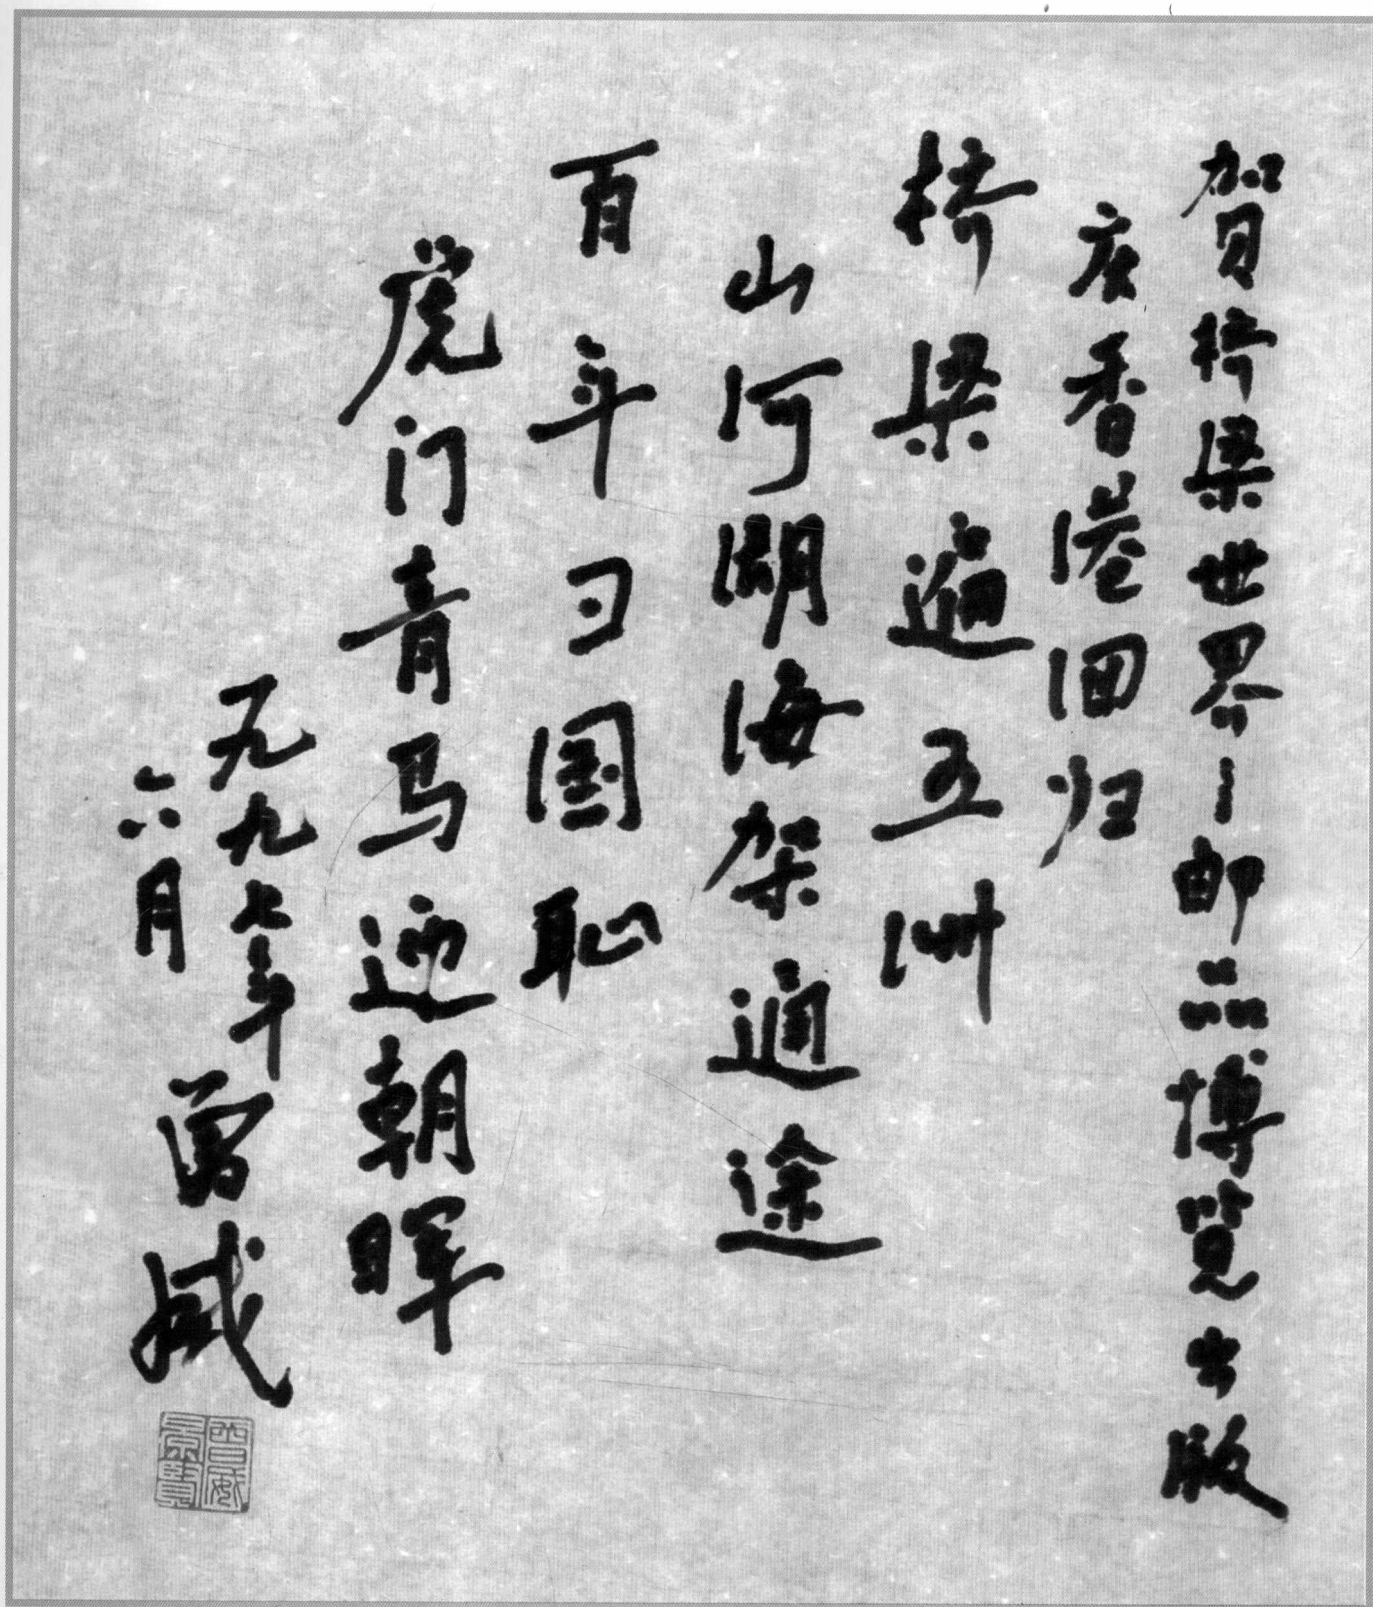 贺桥梁世界——邮品博览出版
庆香港回归
桥梁遍五洲
山河湖海架通途
百年彐国耻
虎门青马迎朝晖
一九九七年
六月
曾威